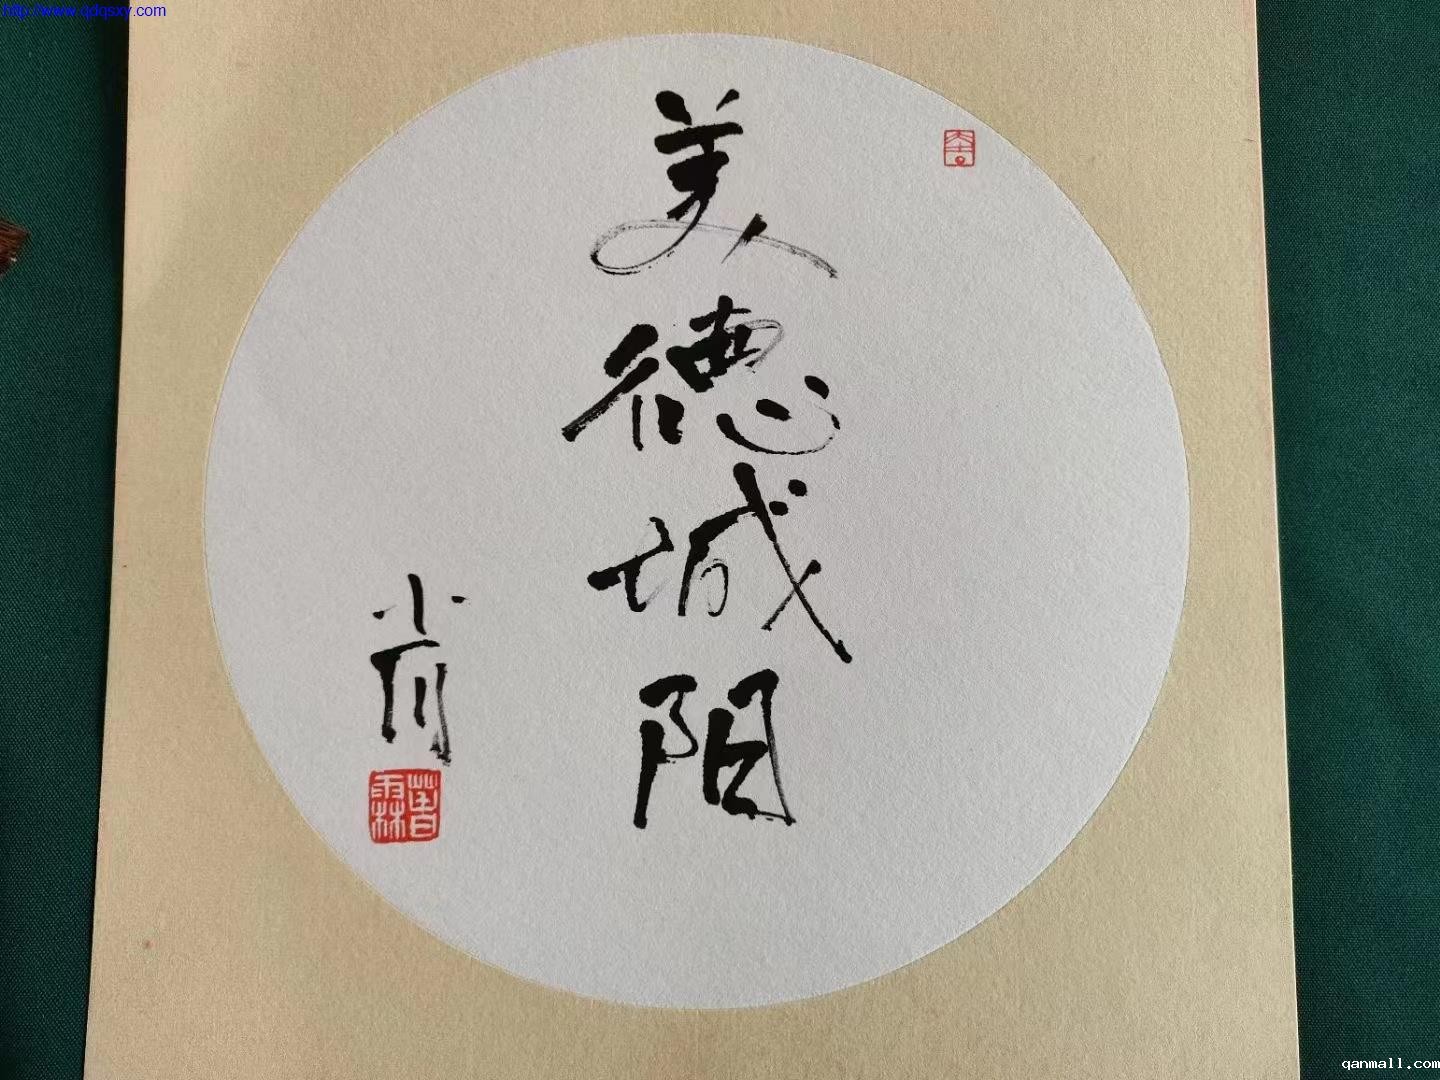 http://www.qdqsxy.com
美德城阳
小雨
qanmall.com